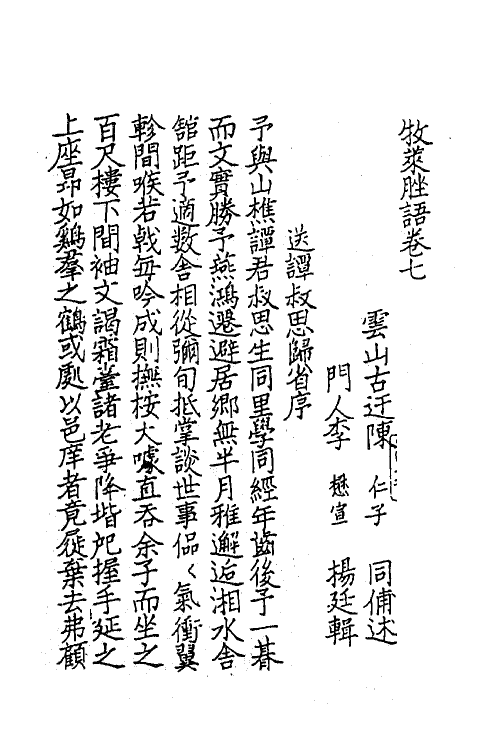 牧萊脞語卷七
雲山古迂陳 仁子 同俌述
門人李 懋宣 楊廷輯
送譚叔思歸省序
予與山樵譚君叔思生同里學同經年齒後予一朞
而文實勝予燕鴻遷避居鄉無半月雅邂逅湘水舍
舘距予適數舍相從彌旬抵掌談世事偘〻氣衝翼
軫間喉若戟每吟成則撫桉大噱直吞余子而坐之
百尺樓下間袖文謁霜臺諸老爭降堦戺握手延之
上座昻如鷄羣之鶴或處以邑庠者竟屣棄去弗顧